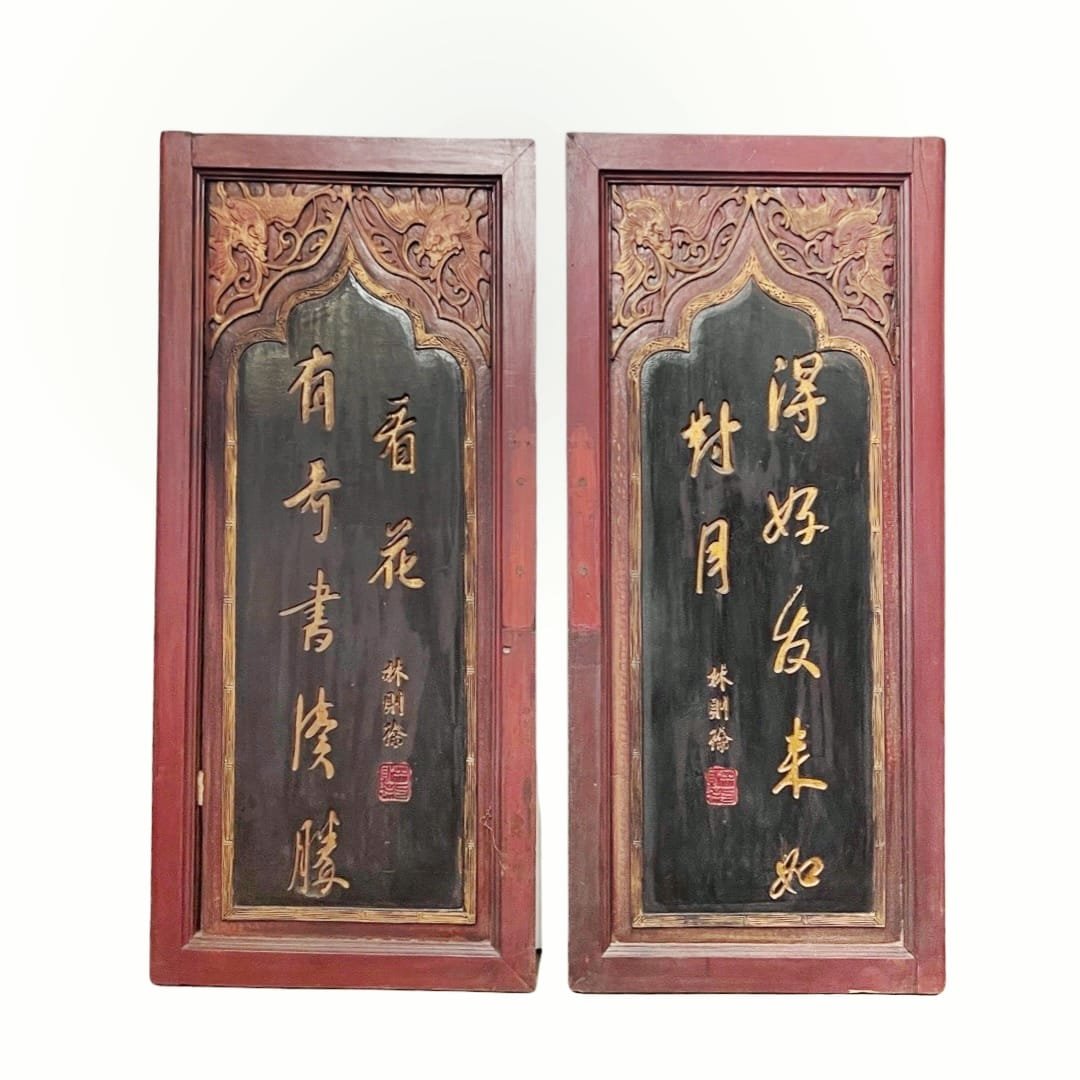 得好友来如
對月 林則徐
有奇書讀勝
看花 林則徐